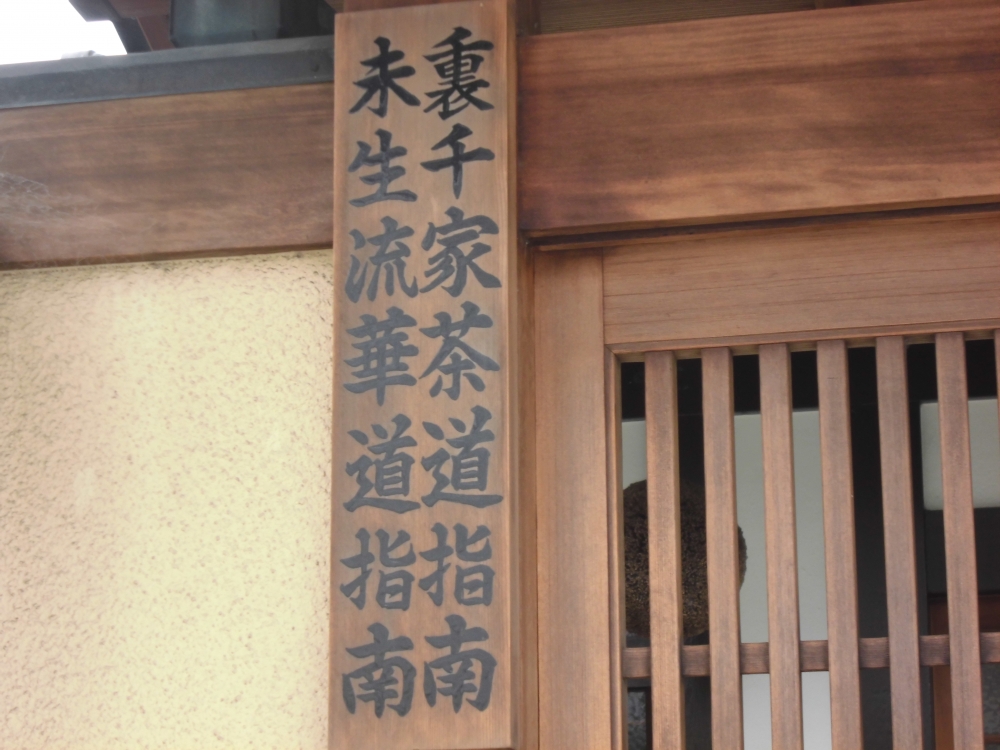 裏千家茶道指南
未生流華道指南